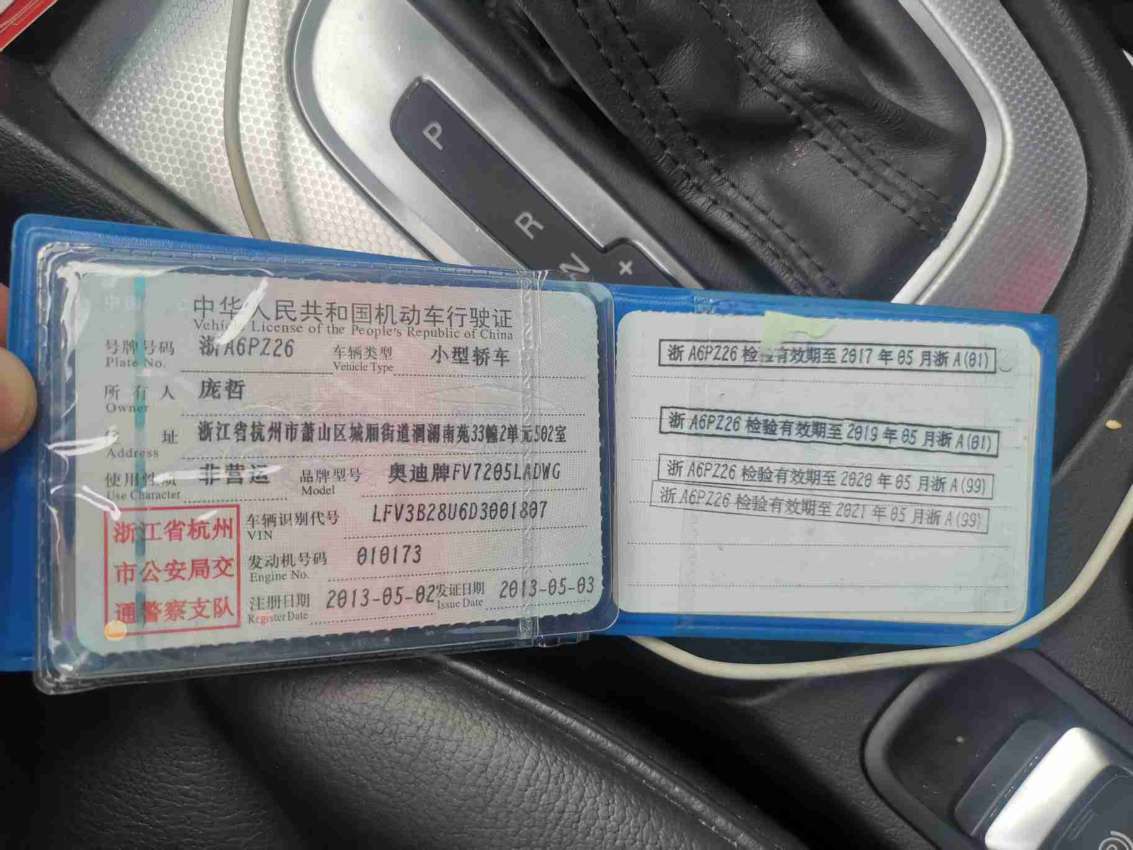 P
R
N
+
中华人民共和国机动车行驶证
Vehicle License of the People's Republic of China
号牌号码 浙A6PZ26 车辆类型 小型轿车
Plate No. Vehicle Type
所有人 庞哲
Owner
住址 浙江省杭州市萧山区城厢街道泗湖南苑33幢2单元502室
Address
使用性质 非营运 品牌型号 奥迪牌FV7205LADWG
Use Character Model
浙江省杭州
市公安局交
通警察支队
车辆识别代号 LFV3B28U6D3001807
VIN
发动机号码 010173
Engine No.
注册日期 2013-05-02 发证日期 2013-05-03
Register Date Issue Date
浙A6PZ26 检验有效期至 2017 年 05 月浙A(01)
浙A6PZ26 检验有效期至 2019 年 05 月浙A(01)
浙A6PZ26 检验有效期至 2020 年 05 月浙A(99)
浙A6PZ26 检验有效期至 2021 年 05 月浙A(99)